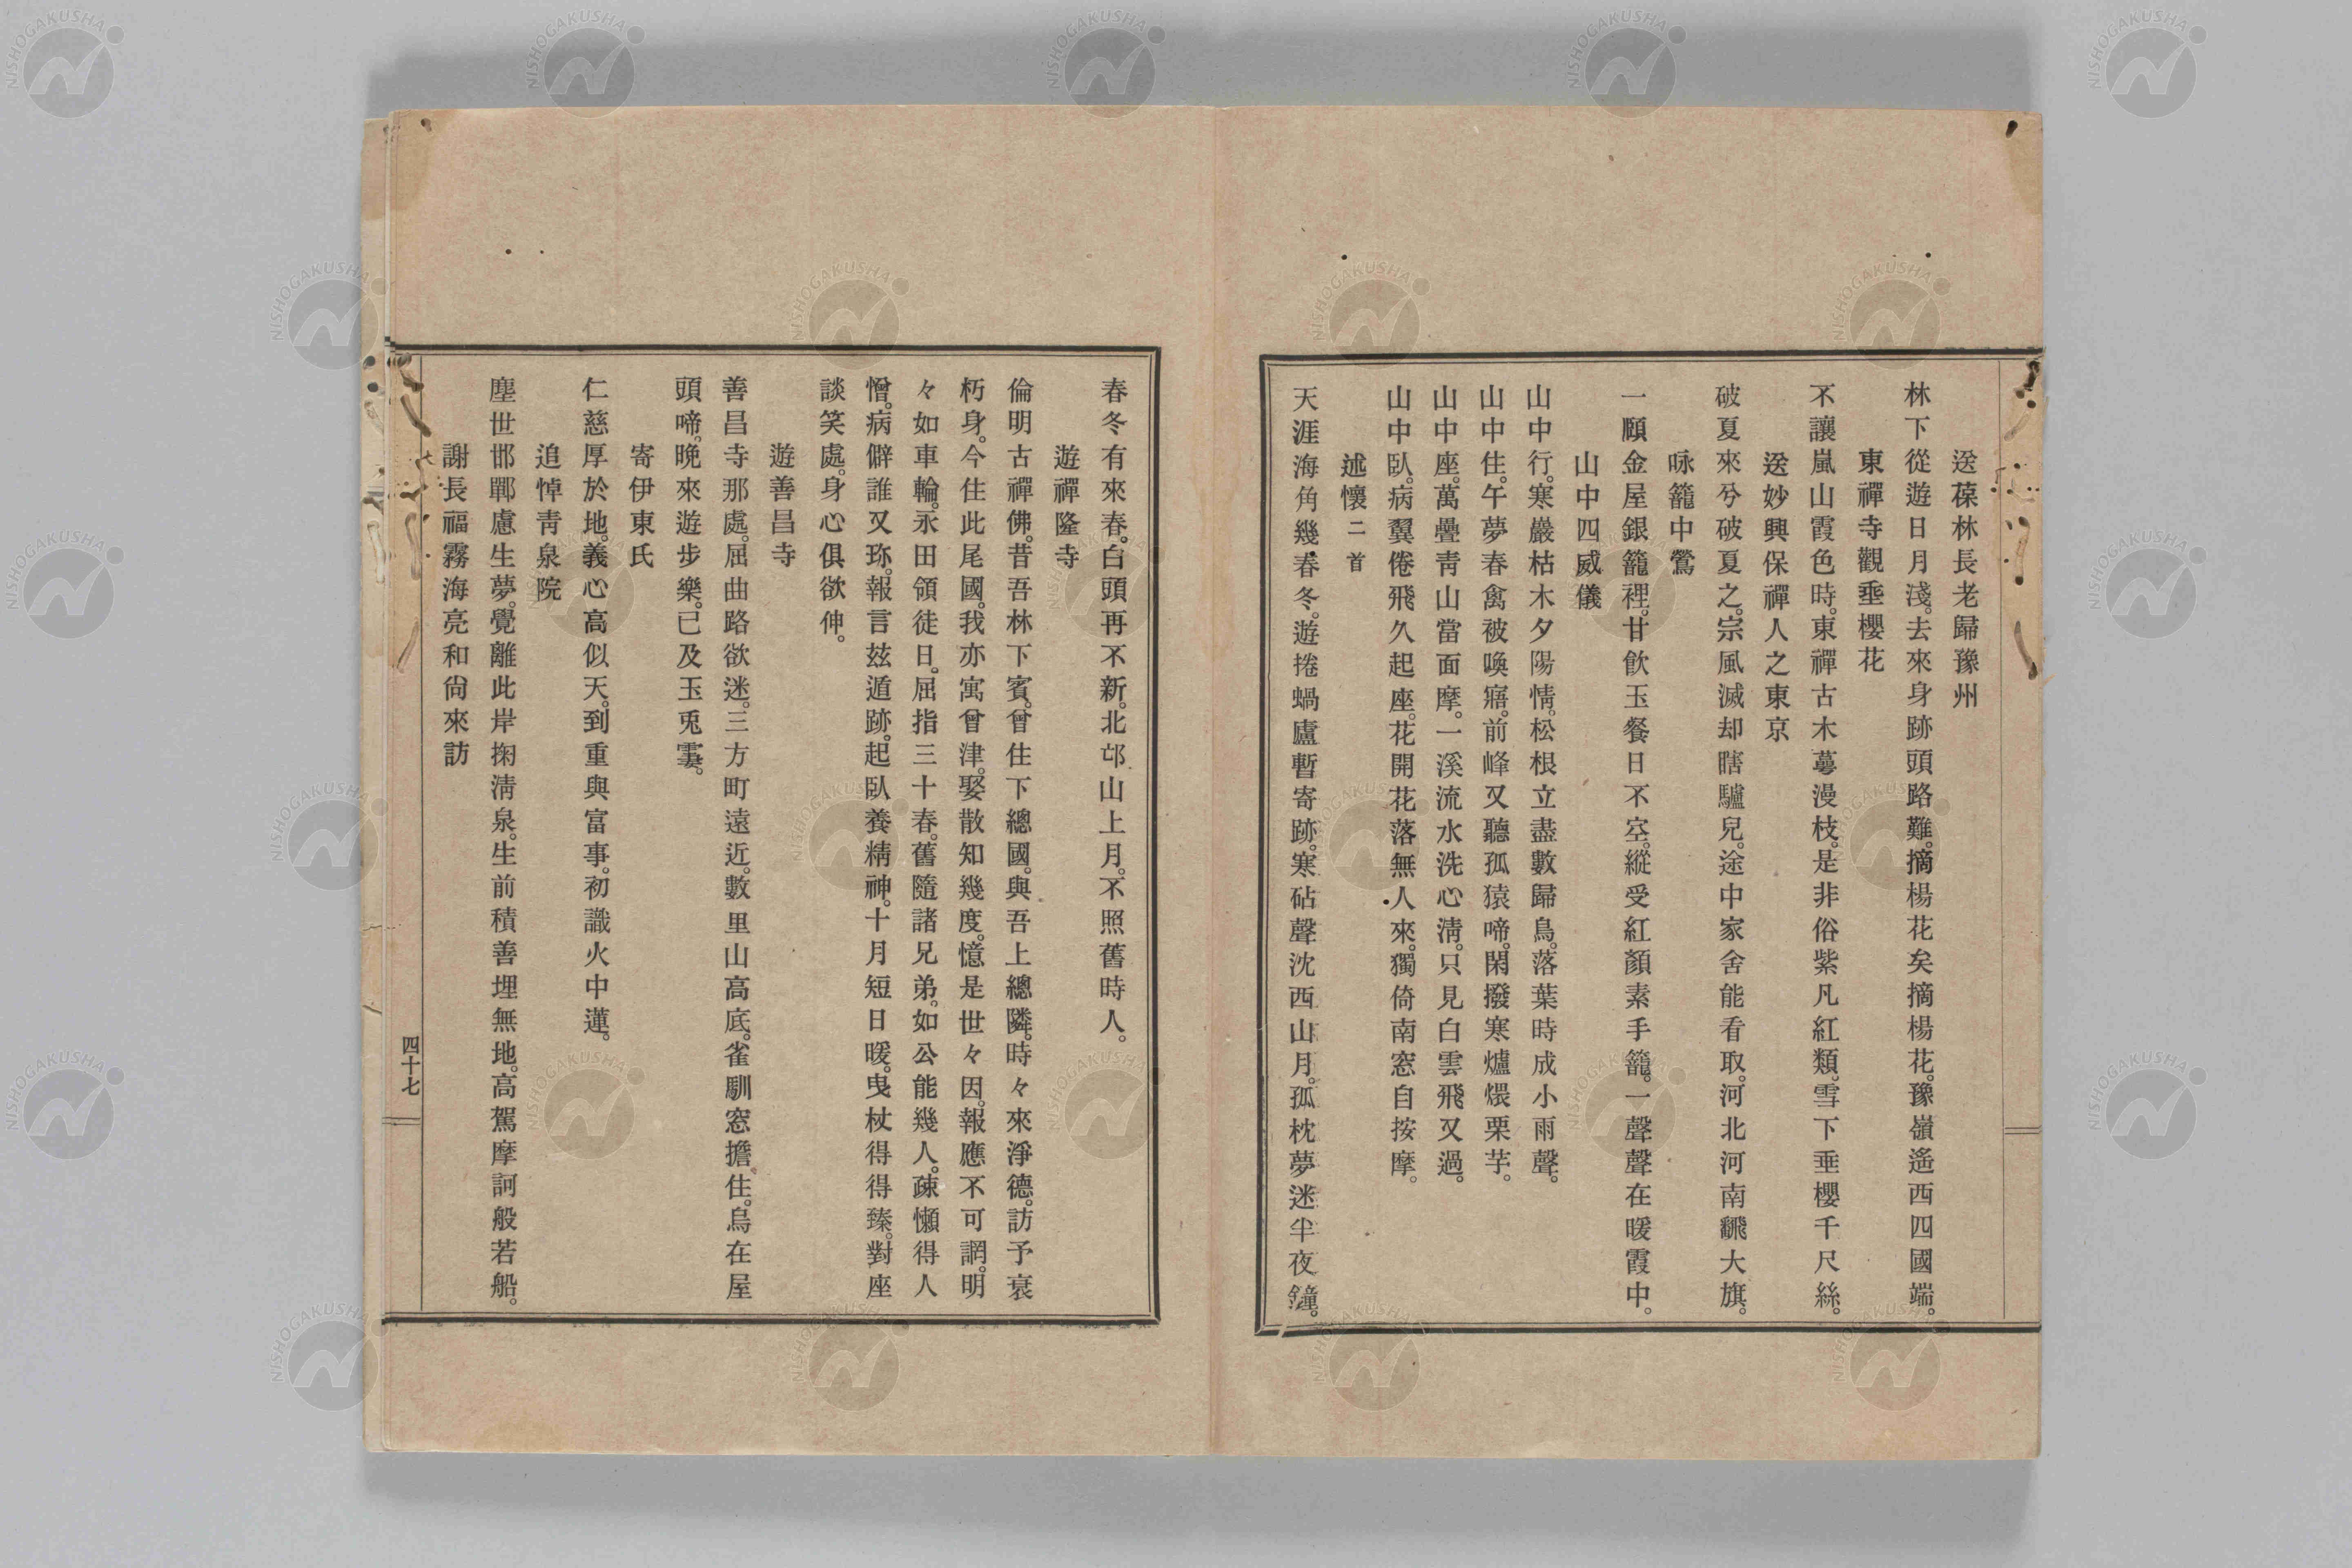 送葆林長老歸豫州
林下從遊日月淺。去來身跡頭路難。摘楊花矣摘楊花。豫嶺遙西四國端。
東禪寺觀垂櫻花
不讓嵐山霞色時。東禪古木蕚漫枝。是非俗紫凡紅類。雪下垂櫻千尺絲。
送妙興保禪人之東京
破夏來兮破夏之。宗風滅却瞎驢兒。途中家舍能看取。河北河南飜大旗。
咏籠中鶯
一願金屋銀籠裡。甘飲玉餐日不空。縱受紅顏素手籠。一聲聲在暖霞中。
山中四威儀
山中行。寒巖枯木夕陽情。松根立盡數歸鳥。落葉時成小雨聲。
山中住。午夢春禽被喚寤。前峰又聽孤猿啼。閑撥寒爐煨栗芋。
山中座。萬疊靑山當面摩。一溪流水洗心淸。只見白雲飛又過。
山中臥。病翼倦飛久起座。花開花落無人來。獨倚南窓自按摩。
述懷二首
天涯海角幾春冬。遊捲蝸廬暫寄跡。寒砧聲沈西山月。孤枕夢迷半夜鐘。
春冬有來春。白頭再不新。北邙山上月。不照舊時人。
遊禪隆寺
倫明古禪佛。昔吾林下賓。曾住下總國。與吾上總隣。時々來淨德。訪予衰
朽身。今住此尾國。我亦寓曾津。娶散知幾度。憶是世々因。報應不可誷。明
々如車輪。永田領徒日。屈指三十春。舊隨諸兄弟。如公能幾人。疎懶得人
憎。病僻誰又珎。報言玆遁跡。起臥養精神。十月短日暖。曳杖得得臻。對座
談笑處。身心俱欲伸。
遊善昌寺
善昌寺那處。屈曲路欲迷。三方町遠近。數里山高底。雀馴窓擔住。烏在屋
頭啼。晩來遊步樂。已及玉兎霎。
寄伊東氏
仁慈厚於地。義心高似天。到重與富事。初識火中蓮。
追悼靑泉院
塵世邯鄲慮生夢。覺離此岸掬淸泉。生前積善埋無地。高駕摩訶般若船。
謝長福霧海亮和尙來訪
四十七
NISHOGAKUSHA